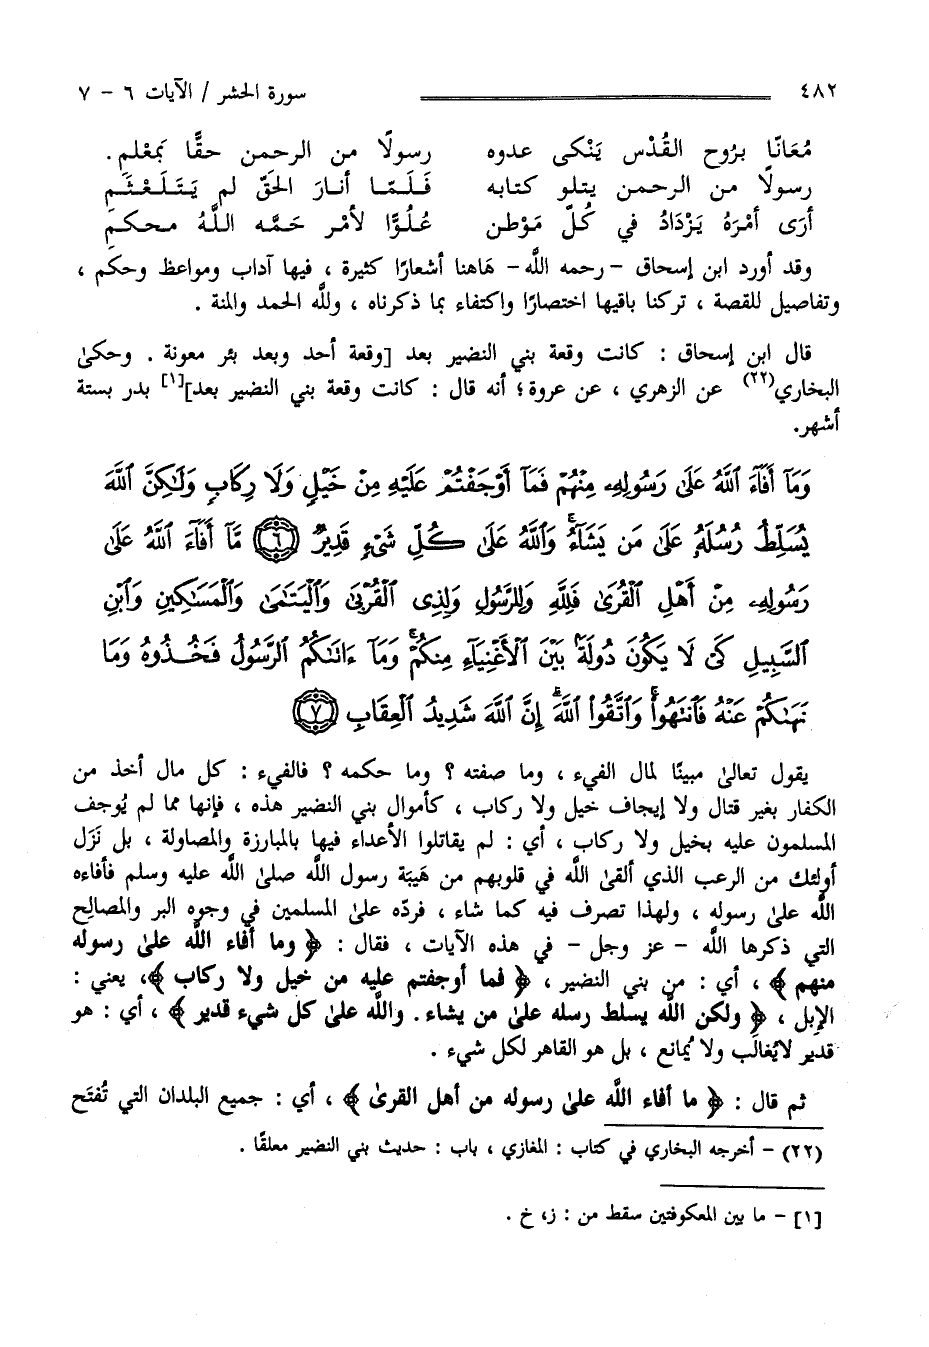 ٤٨٢ سورة الحشر / الآيات ٦ - ٧
مُعَانًا برُوح القُدْس يَنْكى عدوه رسولًا من الرحمن حقًّا بمَعْلمِ .
رسولًا من الرحمن يتلو كتابه فَلَمّا أنارَ الحَقّ لم يَتَلَعْثَمِ
أرَى أمْرَهُ يَزْدَادُ في كُلّ مَوْطن عُلُوًّا لأمْر حَمَّه اللَّهُ محكمِ
وقد أورد ابن إسحاق - رحمه اللَّه - هَاهنا أشعارًا كثيرة ، فيها آداب ومواعظ وحكم ،
وتفاصيل للقصة ، تركنا باقيها اختصارًا واكتفاء بما ذكرناه ، وللَّه الحمد والمنة .
قال ابن إسحاق : كانت وقعة بني النضير بعد [وقعة أحد وبعد بئر معونة . وحكىٰ
البخاري(٢٢) عن الزهري ، عن عروة؛ أنه قال : كانت وقعة بني النضير بعد][١] بدر بستة
أشهر.
وَمَآ أَفَآءَ ٱللَّهُ عَلَىٰ رَسُولِهِۦ مِنْهُمْ فَمَآ أَوْجَفْتُمْ عَلَيْهِ مِنْ خَيْلٍ وَلَا رِكَابٍ وَلَٰكِنَّ ٱللَّهَ
يُسَلِّطُ رُسُلَهُۥ عَلَىٰ مَن يَشَآءُ ۚ وَٱللَّهُ عَلَىٰ كُلِّ شَىْءٍ قَدِيرٌ ٦ مَّآ أَفَآءَ ٱللَّهُ عَلَىٰ
رَسُولِهِۦ مِنْ أَهْلِ ٱلْقُرَىٰ فَلِلَّهِ وَلِلرَّسُولِ وَلِذِى ٱلْقُرْبَىٰ وَٱلْيَتَٰمَىٰ وَٱلْمَسَٰكِينِ وَٱبْنِ
ٱلسَّبِيلِ كَىْ لَا يَكُونَ دُولَةًۢ بَيْنَ ٱلْأَغْنِيَآءِ مِنكُمْ ۚ وَمَآ ءَاتَىٰكُمُ ٱلرَّسُولُ فَخُذُوهُ وَمَا
نَهَىٰكُمْ عَنْهُ فَٱنتَهُوا۟ ۚ وَٱتَّقُوا۟ ٱللَّهَ ۖ إِنَّ ٱللَّهَ شَدِيدُ ٱلْعِقَابِ ٧
يقول تعالىٰ مبينًا لمال الفيء ، وما صفته ؟ وما حكمه ؟ فالفيء : كل مال أخذ من
الكفار بغير قتال ولا إيجاف خيل ولا ركاب ، كأموال بني النضير هذه ، فإنها مما لم يُوجف
المسلمون عليه بخيل ولا ركاب ، أي : لم يقاتلوا الأعداء فيها بالمبارزة والمصاولة ، بل نَزَل
أولئك من الرعب الذي ألقىٰ اللَّه في قلوبهم من هَيبَة رسول اللَّه صلىٰ اللَّه عليه وسلم فأفاءه
اللَّه علىٰ رسوله ، ولهذا تصرف فيه كما شاء ، فردّه علىٰ المسلمين في وجوه البر والمصالح
التي ذكرها اللَّه - عز وجل - في هذه الآيات ، فقال : ﴿ وما أفاء اللَّه علىٰ رسوله
منهم ﴾ ، أي : من بني النضير ، ﴿ فما أوجفتم عليه من خيل ولا ركاب ﴾، يعني :
الإبل ، ﴿ ولكن اللَّه يسلط رسله علىٰ من يشاء . واللَّه علىٰ كل شيء قدير ﴾ ، أي : هو
قدير لايُغالَب ولا يُمانع ، بل هو القاهر لكل شيء .
ثم قال : ﴿ ما أفاء اللَّه علىٰ رسوله من أهل القرىٰ ﴾ ، أي : جميع البلدان التي تُفتَح
(٢٢) - أخرجه البخاري في كتاب : المغازي ، باب : حديث بني النضير معلقًا .
[١] - ما بين المعكوفتين سقط من : ز، خ .